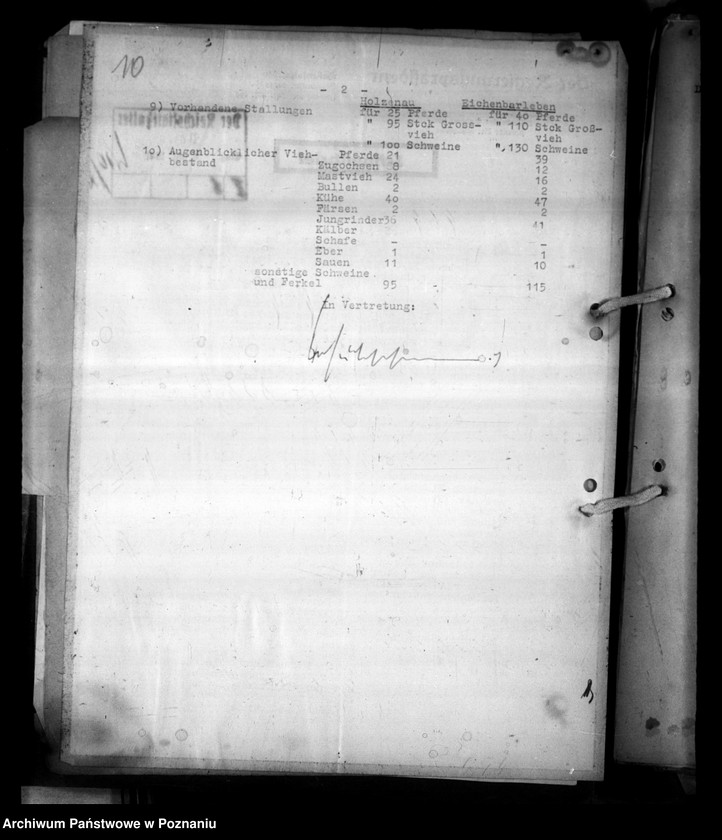 10
- 2 -
Holzenau Eichenbarleben
9) Vorhandene Stallungen für 25 Pferde für 4o Pferde
" 95 Stck Gross- " 110 Stck Groß-
vieh vieh
" 1oo Schweine " 130 Schweine
1o) Augenblicklicher Vieh- Pferde 21 39
bestand Zugochsen 8 12
Mastvieh 24 16
Bullen 2 2
Kühe 4o 47
Färsen 2 2
Jungrinder36 41
Kälber
Schafe - -
Eber 1 1
Sauen 11 10
sonstige Schweine
und Ferkel 95 115
In Vertretung:
Archiwum Państwowe w Poznaniu